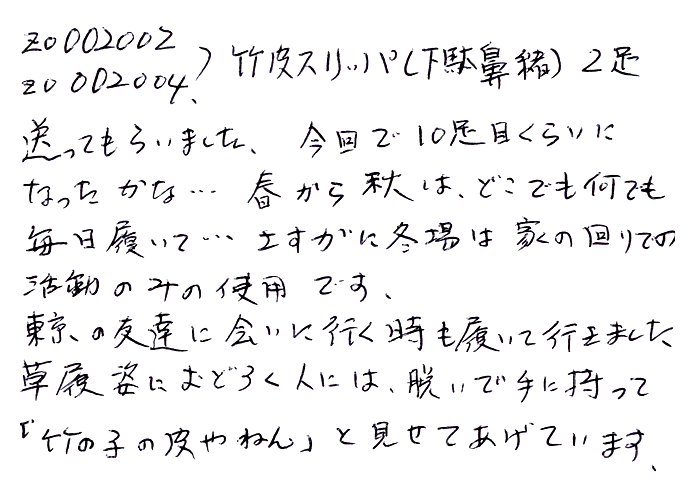 z0002002
z0002004、) 竹皮スリッパ(下駄鼻緒) 2足
送ってもらいました、 今回で10足目くらいに
なったかな… 春から秋は、どこでも何でも
毎日履いて… さすがに冬場は家の回りでの
活動のみの使用です、
東京、の友達に会いに行く時も履いて行きました
草履姿におどろく人には、脱いで手に持って
「竹の子の皮やねん」と見せてあげています、